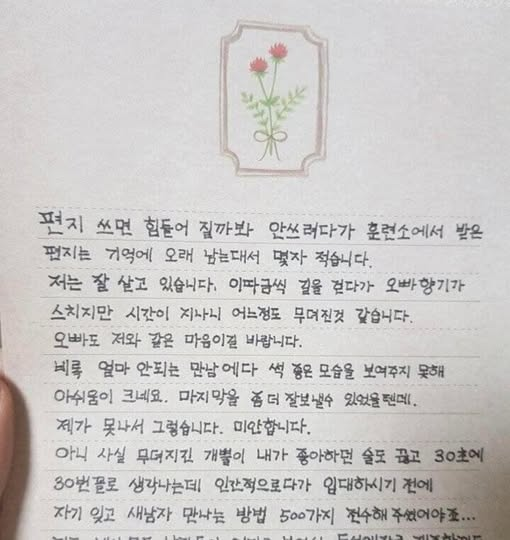 편지 쓰면 힘들어 질까봐 안쓰려다가 훈련소에서 받은
편지는 기억에 오래 남는대서 몇자 적습니다.
저는 잘 살고 있습니다. 이따금씩 길을 걷다가 오빠향기가
스치지만 시간이 지나니 어느정도 무뎌진것 같습니다.
오빠도 저와 같은 마음이길 바랍니다.
비록 얼마 안되는 만남에다 썩 좋은 모습을 보여주지 못해
아쉬움이 크네요. 마지막을 좀 더 잘보낼수 있었을텐데.
제가 못나서 그렇습니다. 미안합니다.
아니 사실 무뎌지긴 개뿔이 내가 좋아하던 술도 끊고 30초에
30번꼴로 생각나는데 인간적으로다가 입대하시기 전에
자기 잊고 새남자 만나는 방법 500가지 전수해 주셨어야죠...